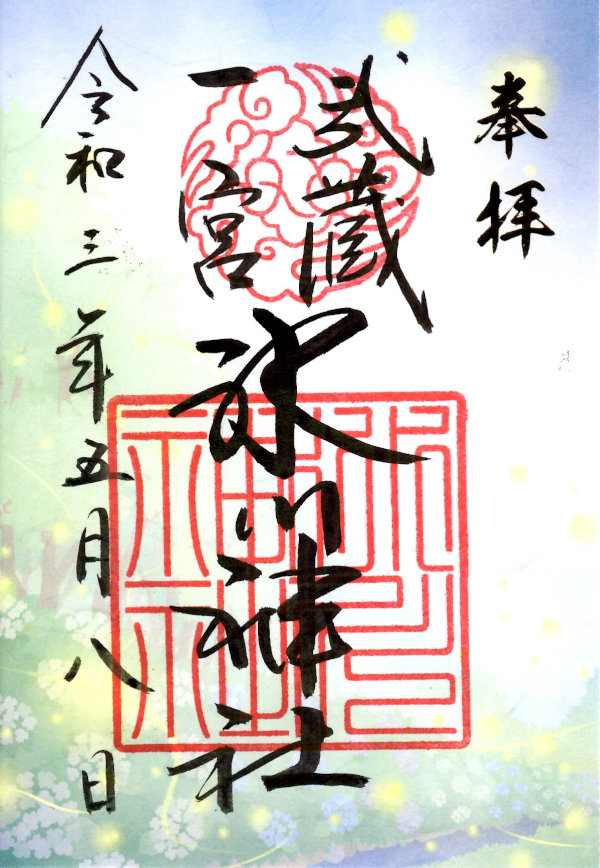 奉拝
武蔵
一宮
氷川神社
令和三年五月八日